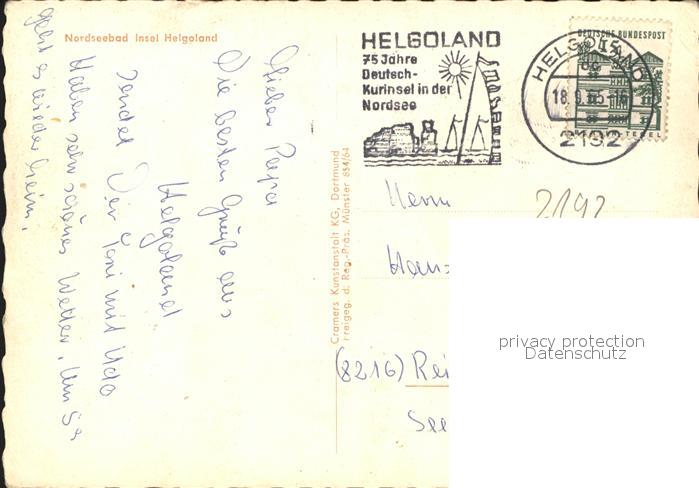 Nordseebad Insel Helgoland
Lieber Papa
Die besten Grüße aus
Helgoland
sendet Dir Toni mit Udo
Haben sehr schönes Wetter. Um
geht es wieder heim.
Cramers Kunstanstalt KG, Dortmund
Freigeg. d. Reg.-Präs. Münster 834/64
HELGOLAND
75 Jahre
Deutsch-
Kurinsel in der
Nordsee
DEUTSCHE BUNDESPOST
15
TEGEL
HELGOLAND
18.9.65-16
2192
Herrn
2192
Hans
(8216) Rei
See
privacy protection
Datenschutz